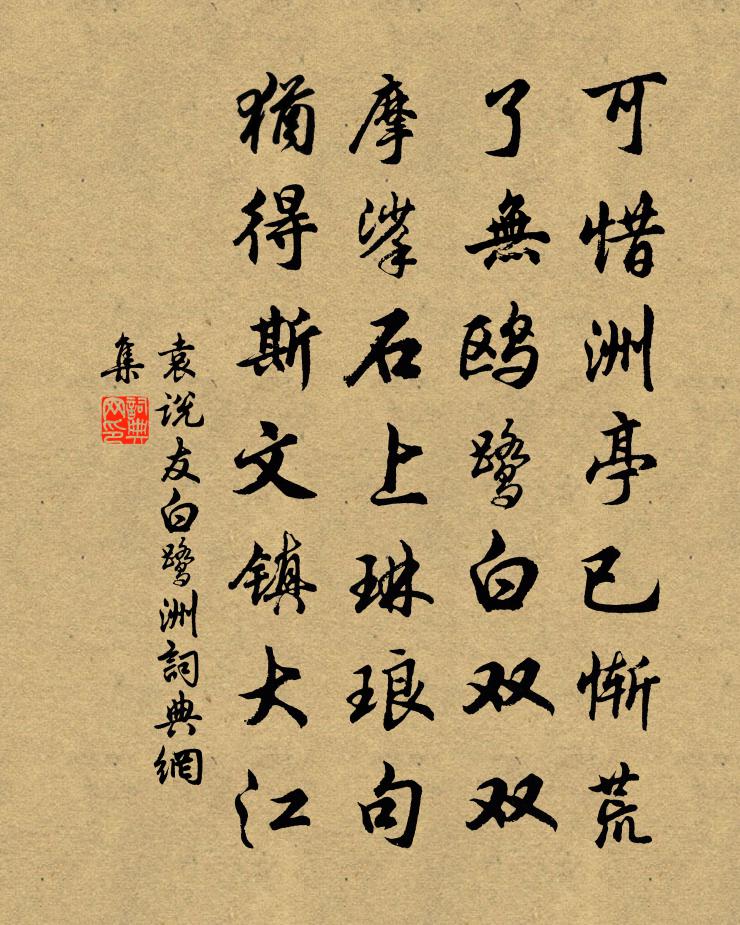 可惜洲亭已惭荒
了無鸥鷺白双双
摩挲石上琳琅句
猶得斯文镇大江
袁说友白鷺洲詞典網
集
詞典
网印